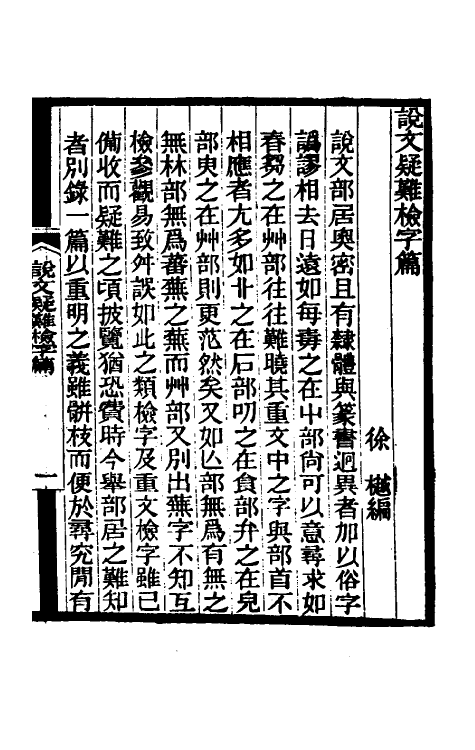 說文疑難檢字篇
徐樾編
說文部居奧密且有隸體與篆書迥異者加以俗字
譌謬相去日遠如每毒之在屮部尚可以意尋求如
春芻之在艸部往往難曉其重文中之字與部首不
相應者尤多如卝之在石部叨之在食部弁之在皃
部㬰之在艸部則更茫然矣又如亾部無爲有無之
無林部無爲蕃蕪之蕪而艸部又別出蕪字不知互
檢參觀易致舛誤如此之類檢字及重文檢字雖已
備收而疑難之頃披覽猶恐費時今舉部居之難知
者別錄一篇以重明之義雖骿枝而便於尋究閒有
說文疑難檢字篇
一